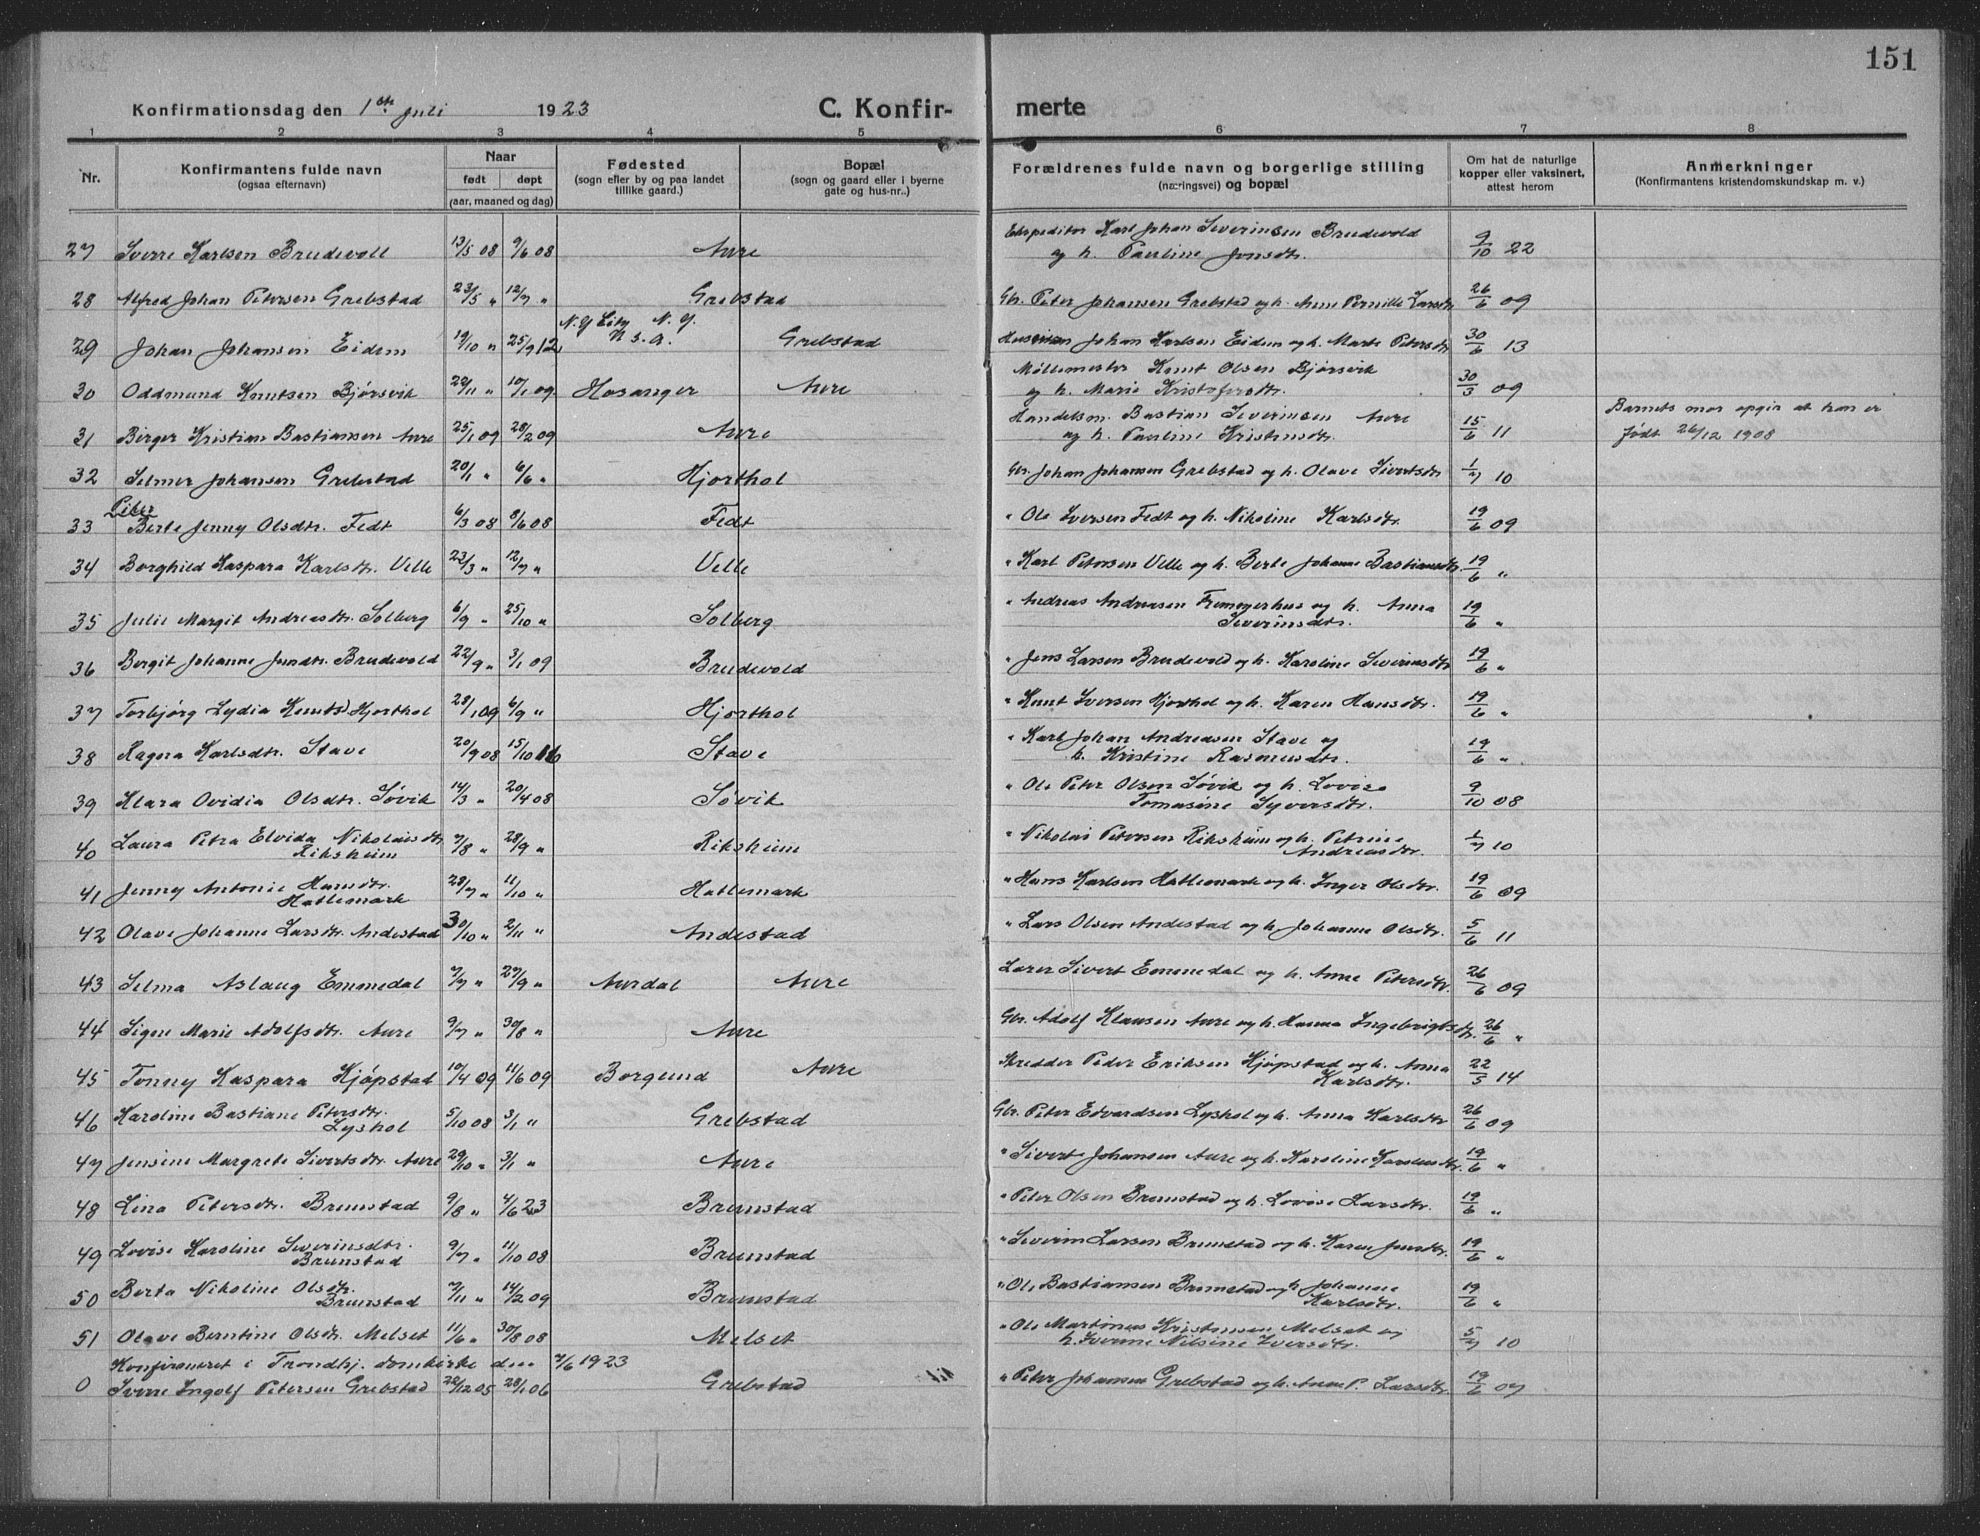 151
Konfirmationsdag den 1ste Juli 1923 C. Konfir- merte
1 2 3 4 5 6 7 8
Nr. Konfirmantens fulde navn (ogsaa efternavn) Naar født døpt (aar, maaned og dag) Fødested (sogn efter by og paa landet tillike gaard.) Bopæl (sogn og gaard eller i byerne gate og hus-nr..) Forældrenes fulde navn og borgerlige stilling (næringsvei) og bopæl Om hat de naturlige kopper eller vaksinert, attest herom Anmerkninger (Konfirmantens kristendomskundskap m. v.)
27 Sverre Karlsen Brudevoll 13/5 08 9/6 08 Aure Ekspeditør Karl Johan Severinsen Brudevold og h. Pauline Jonsdtr. 9/10 22
28 Alfred Johan Petersen Grebstad 23/5 " 12/7 " Grebstad Gbr. Peter Johansen Grebstad og h. Anne Pernille Larsdtr 26/6 09
29 Johan Johansen Eidem 19/10 " 25/9 12 N.Y. City N.Y. U.S.A. Grebstad Husmann Johan Karlsen Eidem og h. Marte Petersdtr 30/6 13
30 Oddmund Knutsen Bjørsvik 22/11 " 10/1 09 Hosanger Aure Møllemester Knut Olsen Bjørsvik og h. Marie Kristofersdtr. 30/3 09
31 Birger Kristian Bastiansen Aure 25/1 09 28/2 09 Aure Handelsm. Bastian Severinsen Aure og h. Pauline Kristinsdtr. 15/6 11 Barnets mor opgir at han er født 26/12 1908
32 Selmer Johansen Grebstad 20/1 " 6/6 " Hjorthol Gbr. Johan Johansen Grebstad og h. Olave Sivertsdtr 1/7 10
33 Berte Jenny Olsdtr. Fedt 6/3 08 8/6 08 Fedt " Ole Iversen Fedt og h. Nikoline Karlsdtr. 19/6 09
34 Borghild Kaspara Karlsdtr. Velle 23/3 " 12/7 " Velle " Karl Petersen Velle og h. Berte Johanne Bastiansdtr. 19/6 "
35 Julie Margit Andreasdtr. Solberg 6/9 " 25/10 " Solberg " Andreas Andreasen Fremmerhus og h. Anna Severinsdtr. 19/6 "
36 Bergit Johanne Jensdtr. Brudevold 22/9 " 3/1 09 Brudevold " Jens Larsen Brudevold og h. Karoline Severinsdtr 19/6 "
37 Torbjørg Lydia Knutsd. Hjorthol 28/1 09 6/9 " Hjorthol " Knut Iversen Hjorthol og h. Karen Hansdtr. 19/6 "
38 Ragna Karlsdtr. Stave 20/9 08 15/10 16 Stave " Karl Johan Andreasen Stave og h. Kristine Rasmusdtr. 19/6 "
39 Klara Ovidia Olsdtr. Søvik 14/3 " 20/4 08 Søvik " Ole Peter Olsen Søvik og h. Lovise Tomasine Syversdtr. 9/10 08
40 Laura Petra Elvida Nikolaisdtr Riksheim 7/8 " 28/9 " Riksheim " Nikolai Petersen Riksheim og h. Petrine Andreasdtr. 1/7 10
41 Jenny Antonie Hansdtr. Hatlemark 28/7 " 11/10 " Hatlemark " Hans Karlsen Hatlemark og h. Inger Olsdtr. 19/6 09
42 Olave Johanne Larsdtr. Andestad 30/10 " 2/11 " Andestad " Lars Olsen Andestad og h. Johanne Olsdtr. 5/6 11
43 Selma Aslaug Emmedal 7/7 " 27/9 " Aurdal Aure Lærer Sivert Emmedal og h. Anne Petersdtr. 26/6 09
44 Signe Marie Adolfsdtr. Aure 9/7 " 30/8 " Aure Gbr. Adolf Klausen Aure og h. Hanna Ingebrigtsdtr. 26/6 "
45 Tonny Kaspara Kjøpstad 10/4 09 11/6 09 Borgund Aure Skredder Peder Eriksen Kjøpstad og h. Anna Karlsdtr. 22/5 14
46 Karoline Bastiane Petersdtr. Lyshol 5/10 08 3/1 " Grebstad Gbr. Peter Edvardsen Lyshol og h. Anna Karlsdtr 26/6 09
47 Jensine Margrete Sivertsdtr. Aure 29/10 " 3/1 " Aure " Sivert Johansen Aure og h. Karoline Karolusdtr. 19/6 "
48 Lina Petersdtr. Brunstad 9/8 " 4/6 23 Brunstad " Peter Olsen Brunstad og h. Lovise Larsdtr. 19/6 "
49 Lovise Karoline Severinsdtr. Brunstad 9/7 " 11/10 08 Brunstad " Severin Larsen Brunstad og h. Karen Jensdtr. 19/6 "
50 Berta Nikoline Olsdtr. Brunstad 7/11 " 14/2 09 Brunstad " Ole Bastiansen Brunstad og h. Johanne Karlsdtr. 19/6 "
51 Olave Berntine Olsdtr. Melset 11/6 " 30/8 08 Melset " Ole Martinus Kristensen Melset og h. Iverine Nilsine Iversdtr. 5/7 10
Konfirmeret i Trondhj. domkirke den 7/6 1923
0 Sverre Ingolf Petersen Grebstad 22/12 05 28/1 06 Grebstad " Peter Johansen Grebstad og h. Anne P. Larsdtr. 19/6 07